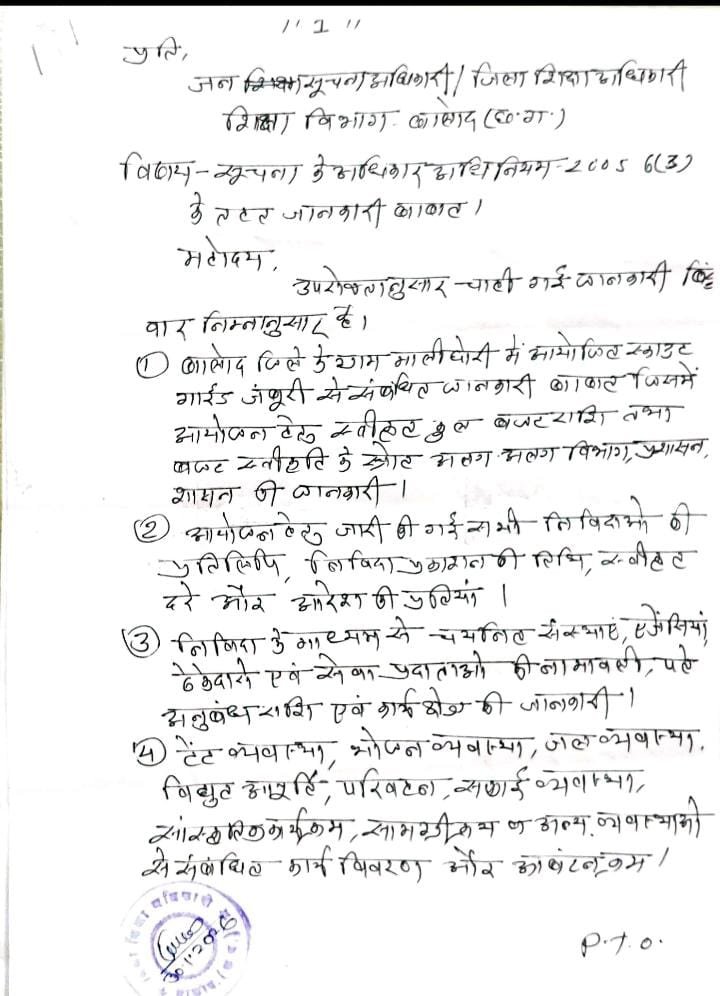 // 1 //
प्रति,
जन सूचना अधिकारी/ जिला शिक्षा अधिकारी
शिक्षा विभाग. बालोद (छ.ग.)
विषय - सूचना के अधिकार अधिनियम-2005 6(3)
के तहत जानकारी बाबत।
महोदय,
उपरोक्तानुसार चाही गई जानकारी बिंदु
वार निम्नानुसार है।
① बालोद जिले के ग्राम मालीघोरी में आयोजित स्काउट
गाईड जंबूरी से संबंधित जानकारी बाबत जिसमें
आयोजन हेतु स्वीकृत कुल बजट राशि तथा
बजट स्वीकृति के स्रोत अलग अलग विभाग, प्रशासन,
शासन की जानकारी।
② आयोजन हेतु जारी की गई सभी निविदाओ की
प्रतिलिपि, निविदा प्रकाशन की तिथि, स्वीकृत
दरे और आदेश की प्रतियां।
③ निविदा के माध्यम से चयनित संस्थाएं, एजेंसियां,
ठेकेदारो एवं सेवा प्रदाताओ की नामावली, पते
अनुबंध राशि एवं कार्य क्षेत्र की जानकारी।
④ टेंट व्यवस्था, भोजन व्यवस्था, जल व्यवस्था,
विद्युत आपूर्ति, परिवहन, सफाई व्यवस्था,
सांस्कृतिक कार्यक्रम, सामग्री क्रय व अन्य व्यवस्थाओ
से संबंधित कार्य विवरण और आबंटन क्रम।
शिक्षा अधिकारी
P.T.O.